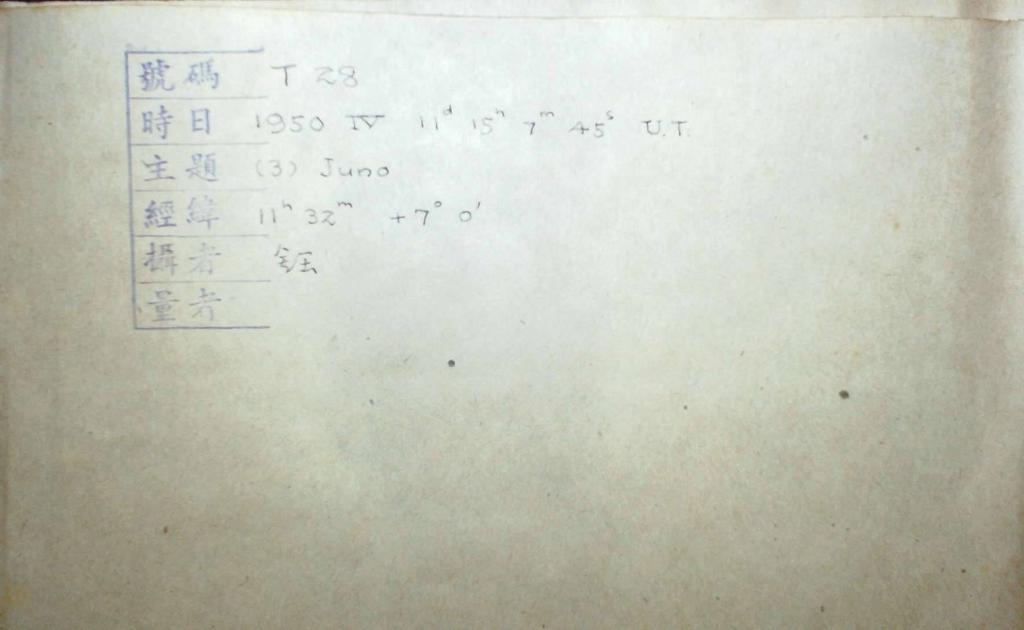 號碼 T 28
時日 1950 IV 11ᵈ 15ʰ 7ᵐ 45ˢ U.T.
主題 (3) Juno
經緯 11ʰ 32ᵐ +7° 0′
攝者
量者